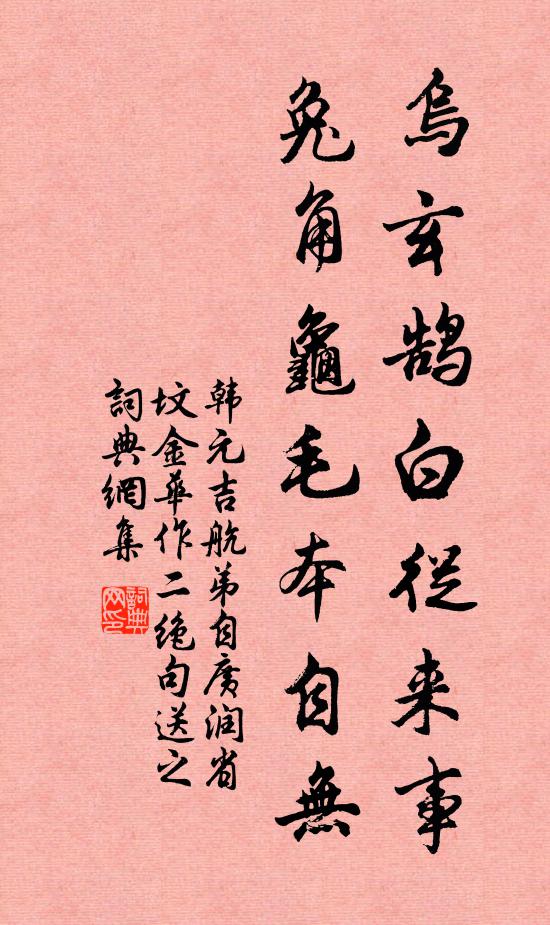 烏玄鹄白從来事
兔角龜毛本自無
韩元吉航弟自廣润省
坟金華作二绝句送之
詞典網集
詞典網印